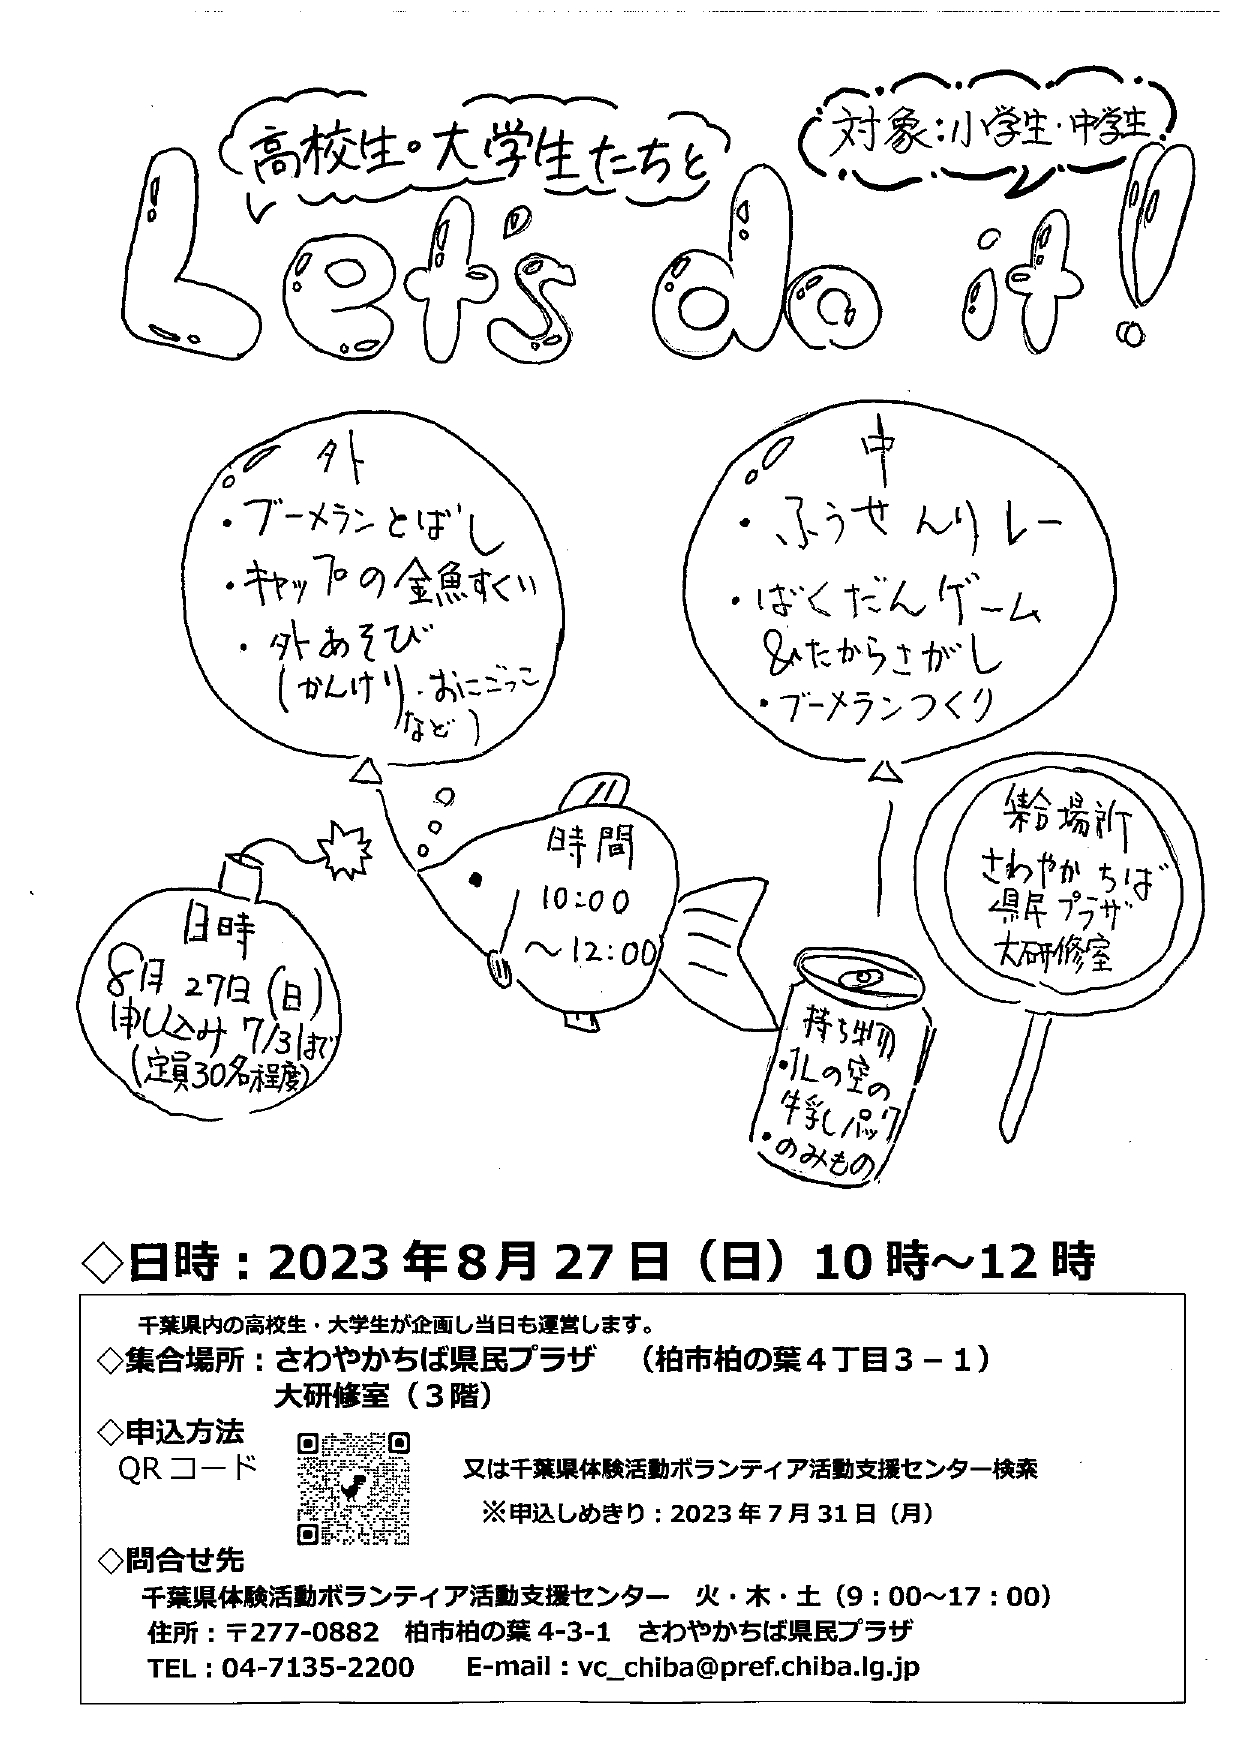 高校生・大学生たちと
対象:小学生・中学生
Let's do it!
外
・ブーメランとばし
・キャップの金魚すくい
・外あそび
(かんけり・おにごっこ
など)
中
・ふうせんリレー
・ばくだんゲーム
&たからさがし
・ブーメランつくり
時間
10:00
～12:00
集合場所
さわやかちば
県民プラザ
大研修室
日時
8月27日(日)
申し込み7/31まで
(定員30名程度)
持ち物
・1Lの空の
牛乳パック
・のみもの
◇日時：2023年8月27日（日）10時～12時
千葉県内の高校生・大学生が企画し当日も運営します。
◇集合場所：さわやかちば県民プラザ　（柏市柏の葉４丁目３－１）
大研修室（３階）
◇申込方法
QRコード
又は千葉県体験活動ボランティア活動支援センター検索
※申込しめきり：2023年7月31日（月）
◇問合せ先
千葉県体験活動ボランティア活動支援センター　火・木・土（9：00～17：00）
住所：〒277-0882　柏市柏の葉4-3-1　さわやかちば県民プラザ
TEL：04-7135-2200　E-mail：vc_chiba@pref.chiba.lg.jp